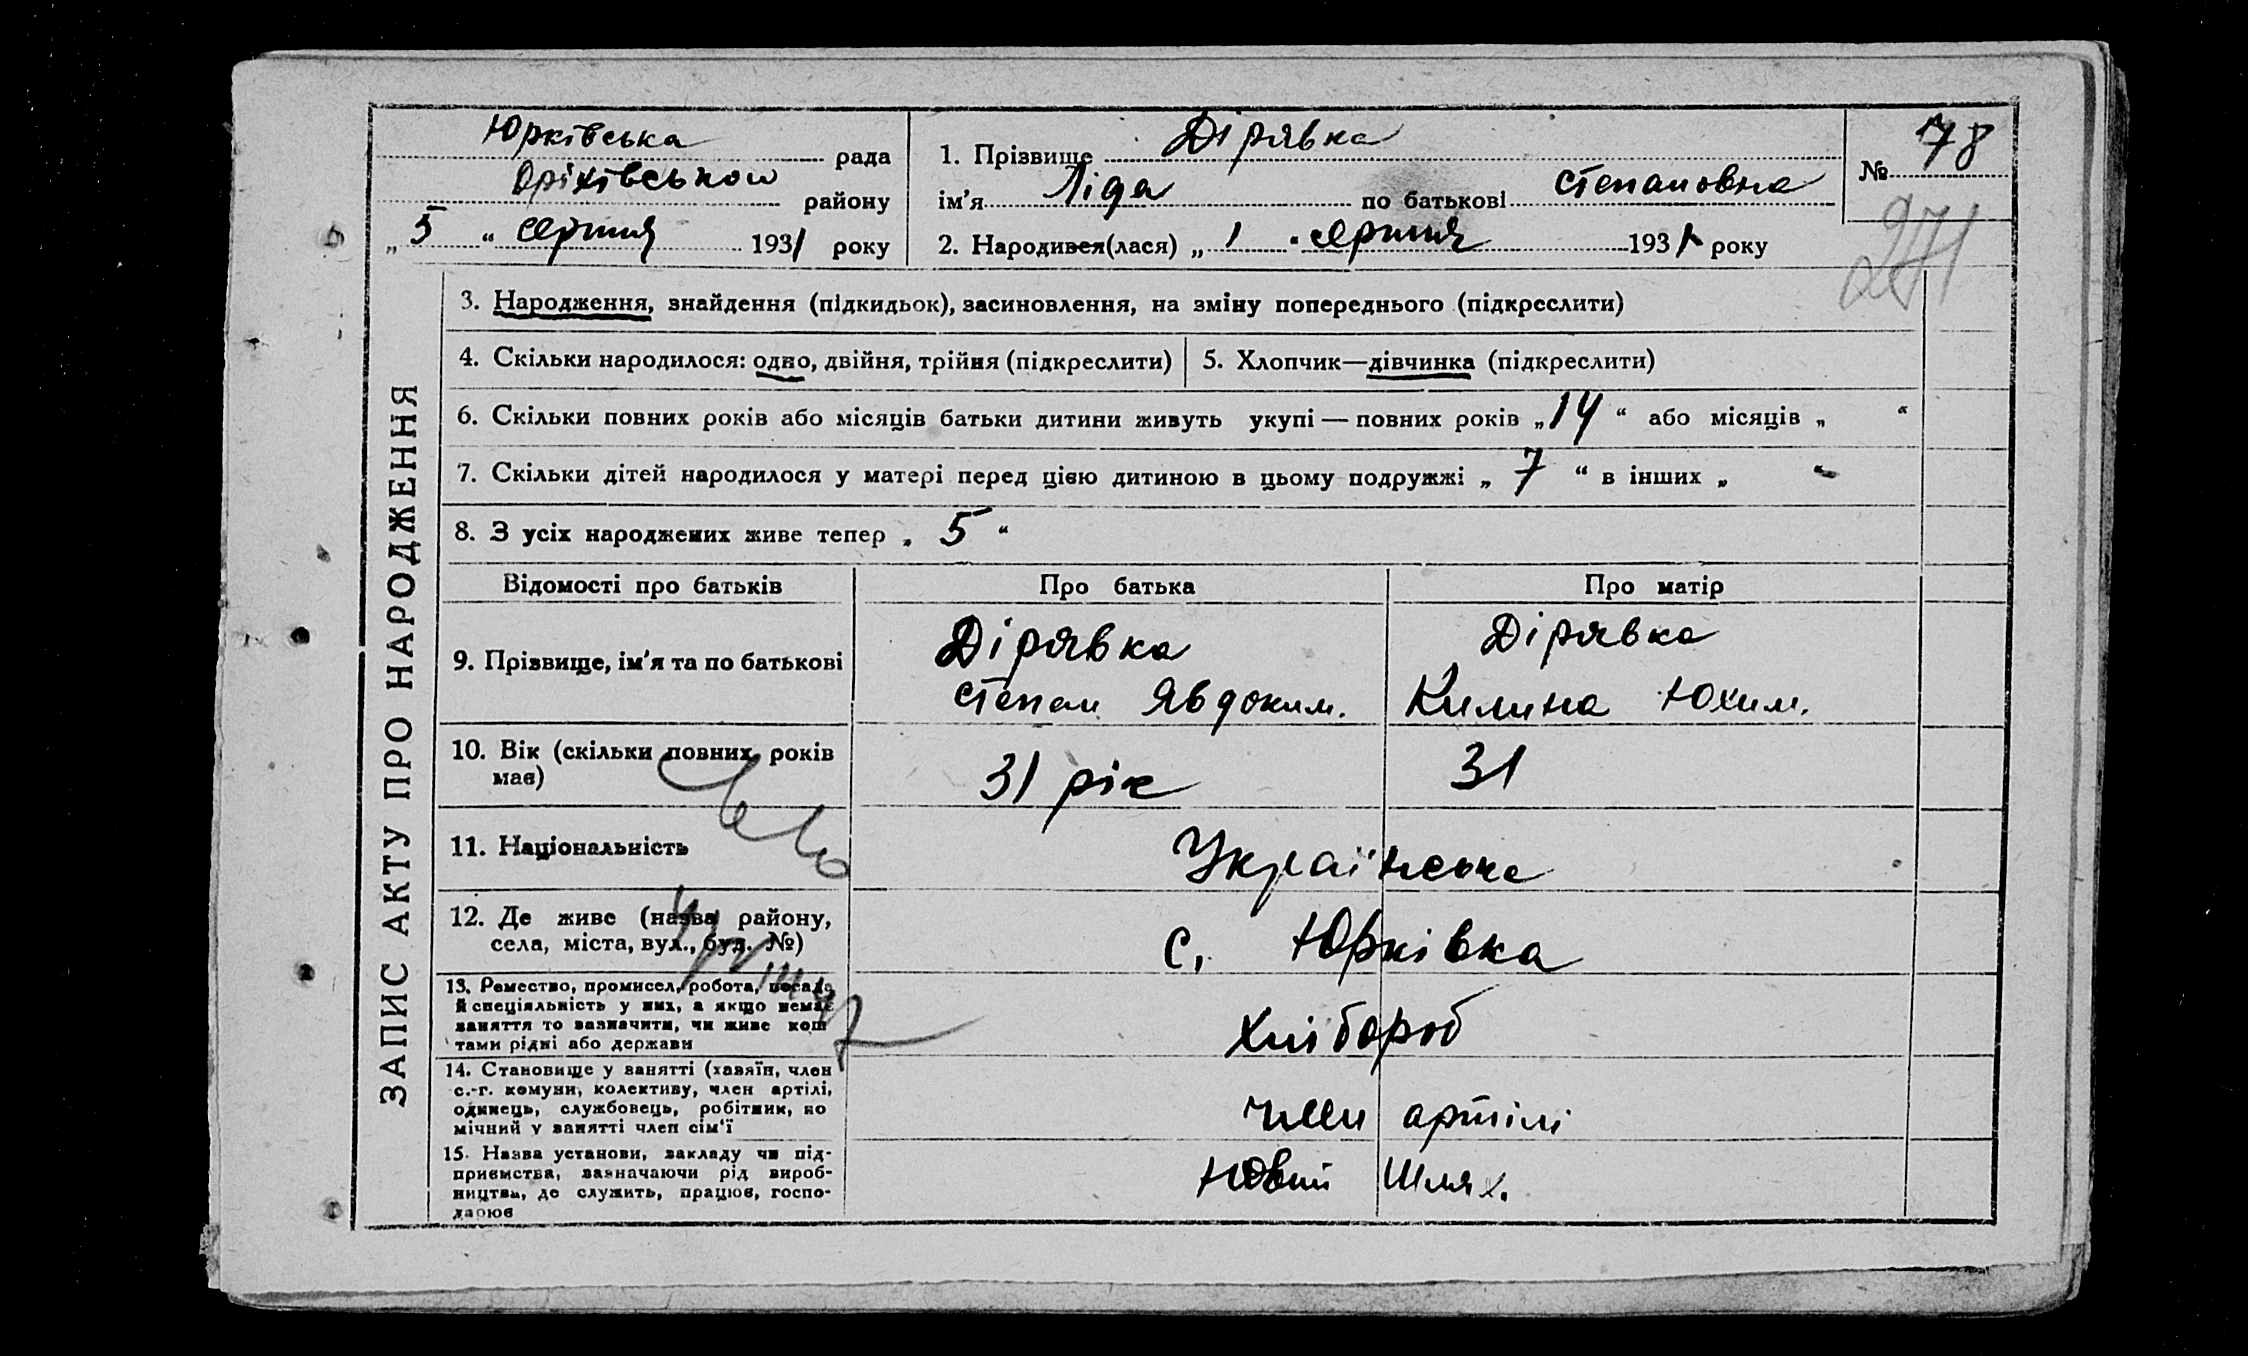 Юрківська рада
Оріхівського району
„ 5 “ серпня 1931 року
1. Прізвище Дірявка
ім’я Ліда по батькові Степановна
2. Народився(лася) „ 1 “ серпня 1931 року
№ 78
271
ЗАПИС АКТУ ПРО НАРОДЖЕННЯ
3. Народження, знайдення (підкидьок), засиновлення, на зміну попереднього (підкреслити)
4. Скільки народилося: одно, двійня, трійня (підкреслити)
5. Хлопчик—дівчинка (підкреслити)
6. Скільки повних років або місяців батьки дитини живуть укупі — повних років „ 14 “ або місяців „ “
7. Скільки дітей народилося у матері перед цією дитиною в цьому подружжі „ 7 “ в інших „ - “
8. З усіх народжених живе тепер „ 5 “
Відомості про батьків
Про батька
Про матір
9. Прізвище, ім’я та по батькові
Дірявка
Степан Явдоким.
Дірявка
Килина Юхим.
10. Вік (скільки повних років
має)
31 рік
31
11. Національність
Українське
12. Де живе (назва району,
села, міста, вул., буд. №)
с. Юрківка
13. Ремество, промисел, робота, посада
й спеціяльність у них, а якщо немає
заняття то зазначити, чи живе кош
тами рідні або держави
Хлібороб
14. Становище у занятті (хазяїн, член
с.-г. комуни, колективу, член артілі,
одинець, службовець, робітник, по
мічний у занятті член сім’ї
член артілі
15. Назва установи, закладу чи під-
приємства, зазначаючи рід вироб-
ництва, де служить, працює, госпо-
дарює
Новий Шлях.